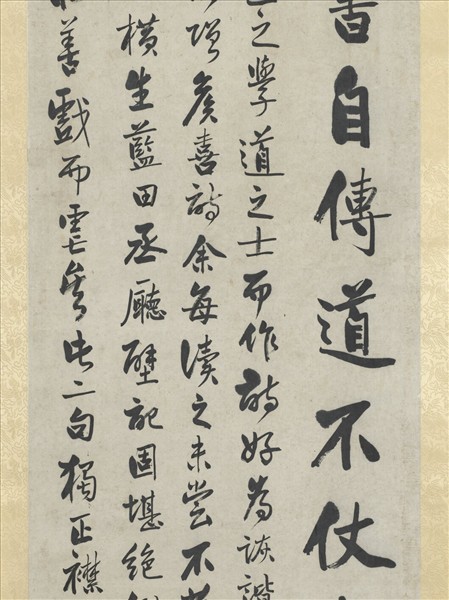 書自傳道不仗
之學道之士而作詩好為詼諧
贈侯喜詩余每讀之未嘗不
橫生藍田丞廳壁記固堪絕
善戲而此二句獨正襟